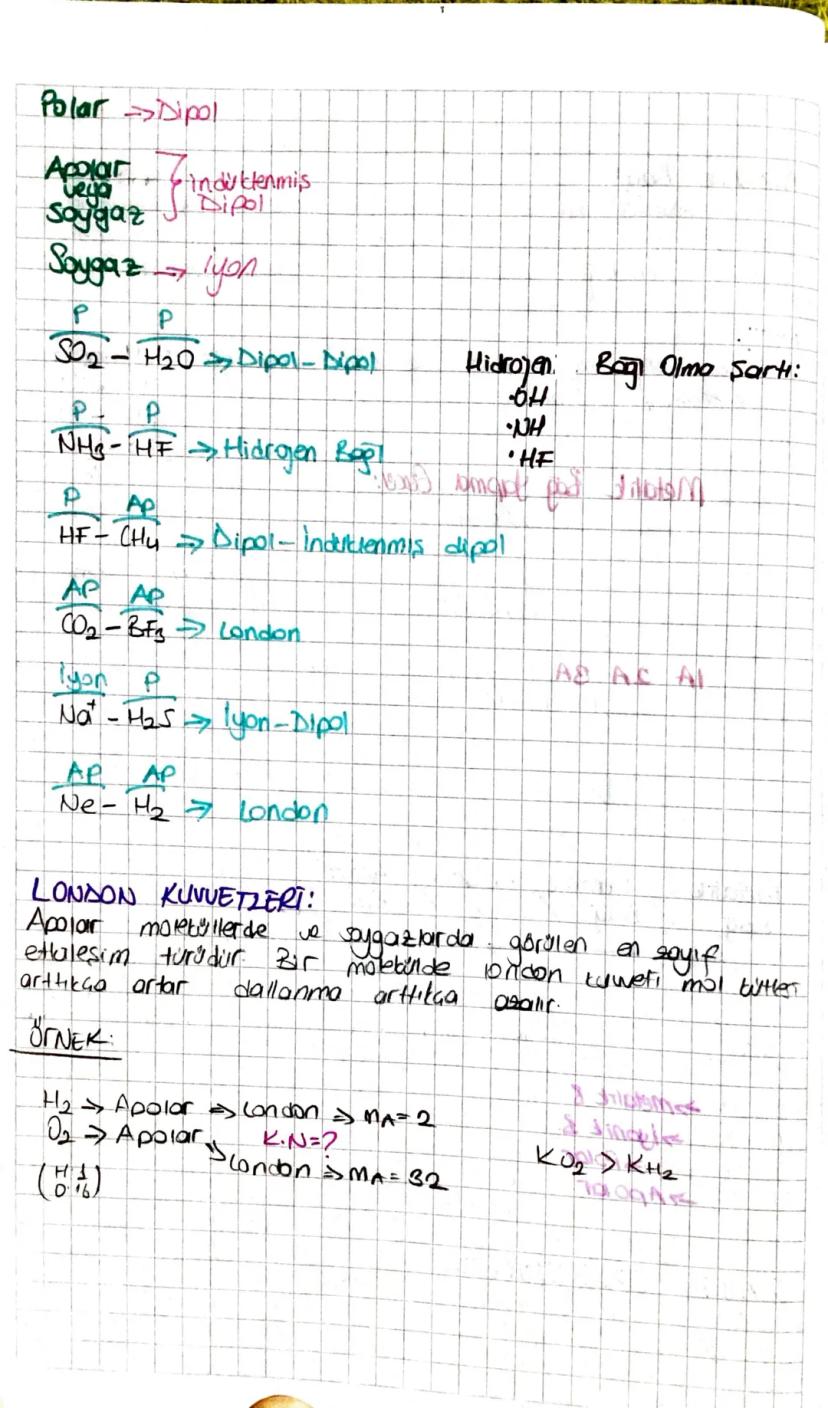 Polar → Dipol
Apolar
veya
Soygaz
} indüklenmiş
Dipol
Soygaz → iyon
P P
SO2 – H2O → Dipol-Dipol
Hidrojen Bağı Olma Şartı:
• OH
• NH
• HF
P P
NH3 - HF → Hidrogen Bağı
P Ap
HF - CH4 → Dipol-indüklenmiş dipol
AP AP
CO2 - BF3 → London
İyon P
Na+ - H2S → İyon-Dipol
AP AP
Ne - H2 → London
LONDON KUVVETLERİ:
Apolar moleküllerde ve soygazlarda görülen en zayıf
etkileşim türüdür. Bir molekülde london kuvveti mol kütlesi
arttıkça artar dallanma arttıkça azalır.
ÖRNEK:
H2 → Apolar → London → mA = 2
O2 → Apolar K.N=?
→ London → mA = 32
KO2 > KH2
(H: 1
O: 16)